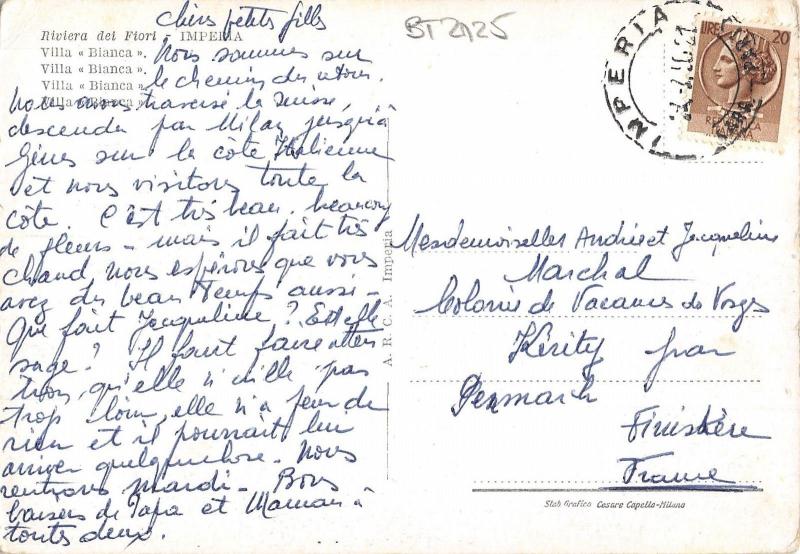 chères petites filles
BT2125
Riviera dei Fiori - IMPERIA
Villa « Bianca ».
Villa « Bianca ».
Villa « Bianca ».
Villa « Bianca ».
Nous sommes sur
le chemin du retour.
Nous avons traversé la Suisse,
descendu par Milan jusqu'à
Gênes sur la côte Italienne
et nous visitons toute la
côte. C'est très beau, beaucoup
de fleurs - mais il fait très
chaud, nous espérons que vous
avez du beau temps aussi -
Que fait Jacqueline? Est elle
sage? Il faut faire atten
tion, qu'elle n'aille pas
trop loin, elle n'a peur de
rien et il pourrait lui
arriver quelquechose. Nous
rentrons mardi - Bons
baisers de Papa et Maman à
toutes deux.
A. R. C. A. Imperia
IMPERIA
LIRE 20
Mesdemoiselles Andrée et Jacqueline
Marchal
Colonie de Vacances des Vosges
Kérity par
Penmarch
Finistère
France
Stab Grafico Cesare Capello-Milano